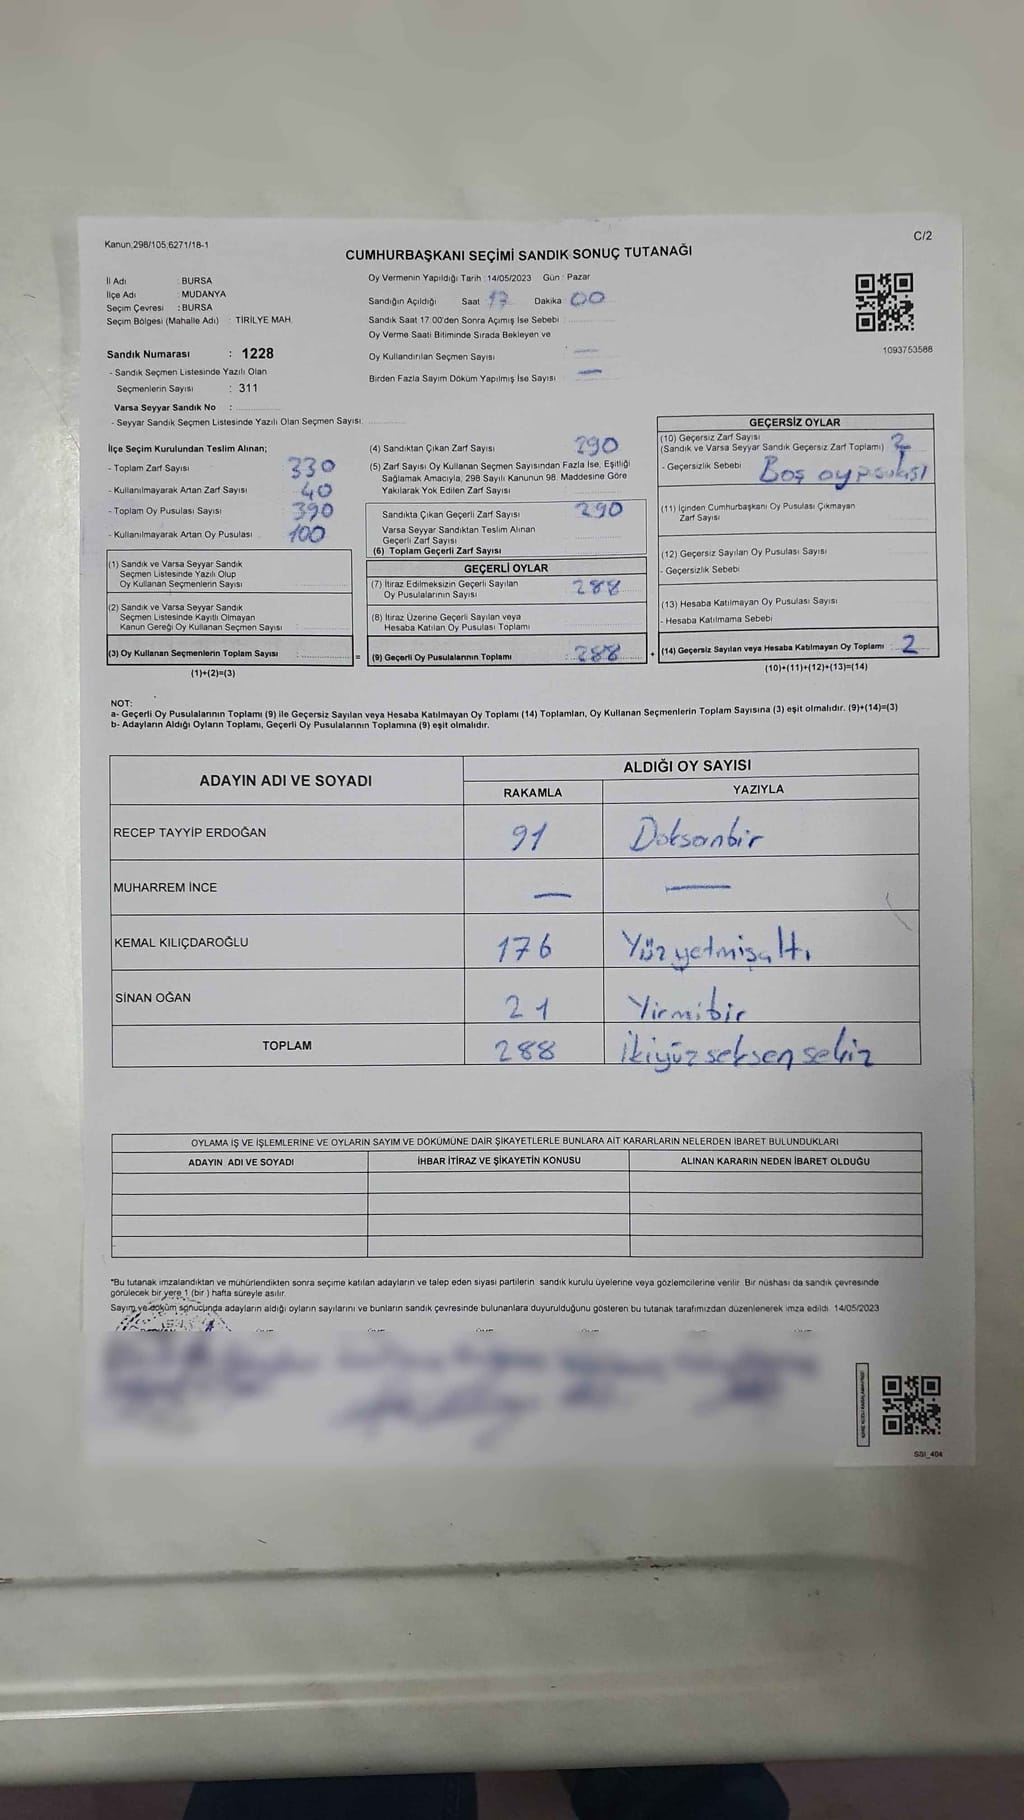 Kanun;298/105,6271/18-1
C/2
CUMHURBAŞKANI SEÇİMİ SANDIK SONUÇ TUTANAĞI
İl Adı : BURSA
İlçe Adı : MUDANYA
Seçim Çevresi : BURSA
Seçim Bölgesi (Mahalle Adı) : TİRİLYE MAH.
Sandık Numarası : 1228
- Sandık Seçmen Listesinde Yazılı Olan
Seçmenlerin Sayısı : 311
Varsa Seyyar Sandık No :
- Seyyar Sandık Seçmen Listesinde Yazılı Olan Seçmen Sayısı.
Oy Vermenin Yapıldığı Tarih : 14/05/2023 Gün : Pazar
Sandığın Açıldığı Saat 17 Dakika 00
Sandık Saat 17:00'den Sonra Açımış İse Sebebi
Oy Verme Saati Bitiminde Sırada Bekleyen ve
Oy Kullandırılan Seçmen Sayısı —
Birden Fazla Sayım Döküm Yapılmış İse Sayısı —
1093753588
İlçe Seçim Kurulundan Teslim Alınan;
- Toplam Zarf Sayısı 330
- Kullanılmayarak Artan Zarf Sayısı 40
- Toplam Oy Pusulası Sayısı 390
- Kullanılmayarak Artan Oy Pusulası 100
(1) Sandık ve Varsa Seyyar Sandık
Seçmen Listesinde Yazılı Olup
Oy Kullanan Seçmenlerin Sayısı
(2) Sandık ve Varsa Seyyar Sandık
Seçmen Listesinde Kayıtlı Olmayan
Kanun Gereği Oy Kullanan Seçmen Sayısı
(3) Oy Kullanan Seçmenlerin Toplam Sayısı
=
(1)+(2)=(3)
(4) Sandıktan Çıkan Zarf Sayısı 290
(5) Zarf Sayısı Oy Kullanan Seçmen Sayısından Fazla İse, Eşitliği
Sağlamak Amacıyla, 298 Sayılı Kanunun 98. Maddesine Göre
Yakılarak Yok Edilen Zarf Sayısı
Sandıkta Çıkan Geçerli Zarf Sayısı 290
Varsa Seyyar Sandıktan Teslim Alınan
Geçerli Zarf Sayısı
(6) Toplam Geçerli Zarf Sayısı
GEÇERLİ OYLAR
(7) İtiraz Edilmeksizin Geçerli Sayılan
Oy Pusulalarının Sayısı 288
(8) İtiraz Üzerine Geçerli Sayılan veya
Hesaba Katılan Oy Pusulası Toplamı
(9) Geçerli Oy Pusulalarının Toplamı : 288
+
GEÇERSİZ OYLAR
(10) Geçersiz Zarf Sayısı
(Sandık ve Varsa Seyyar Sandık Geçersiz Zarf Toplamı) 2
- Geçersizlik Sebebi Boş oy pusulası
(11) İçinden Cumhurbaşkanı Oy Pusulası Çıkmayan
Zarf Sayısı
(12) Geçersiz Sayılan Oy Pusulası Sayısı
- Geçersizlik Sebebi
(13) Hesaba Katılmayan Oy Pusulası Sayısı
- Hesaba Katılmama Sebebi
(14) Geçersiz Sayılan veya Hesaba Katılmayan Oy Toplamı : 2
(10)+(11)+(12)+(13)=(14)
NOT:
a- Geçerli Oy Pusulalarının Toplamı (9) ile Geçersiz Sayılan veya Hesaba Katılmayan Oy Toplamı (14) Toplamları, Oy Kullanan Seçmenlerin Toplam Sayısına (3) eşit olmalıdır. (9)+(14)=(3)
b- Adayların Aldığı Oyların Toplamı, Geçerli Oy Pusulalarının Toplamına (9) eşit olmalıdır.
ADAYIN ADI VE SOYADI
ALDIĞI OY SAYISI
RAKAMLA YAZIYLA
RECEP TAYYİP ERDOĞAN 91 Doksanbir
MUHARREM İNCE — —
KEMAL KILIÇDAROĞLU 176 Yüzyetmişaltı
SİNAN OĞAN 21 Yirmibir
TOPLAM 288 İkiyüzseksensekiz
OYLAMA İŞ VE İŞLEMLERİNE VE OYLARIN SAYIM VE DÖKÜMÜNE DAİR ŞİKAYETLERLE BUNLARA AİT KARARLARIN NELERDEN İBARET BULUNDUKLARI
ADAYIN ADI VE SOYADI İHBAR İTİRAZ VE ŞİKAYETİN KONUSU ALINAN KARARIN NEDEN İBARET OLDUĞU
*Bu tutanak imzalandıktan ve mühürlendikten sonra seçime katılan adayların ve talep eden siyasi partilerin sandık kurulu üyelerine veya gözlemcilerine verilir. Bir nüshası da sandık çevresinde
görülecek bir yere 1 (bir) hafta süreyle asılır.
Sayım ve döküm sonucunda adayların aldığı oyların sayılarını ve bunların sandık çevresinde bulunanlara duyurulduğunu gösteren bu tutanak tarafımızdan düzenlenerek imza edildi. 14/05/2023
SSI_404